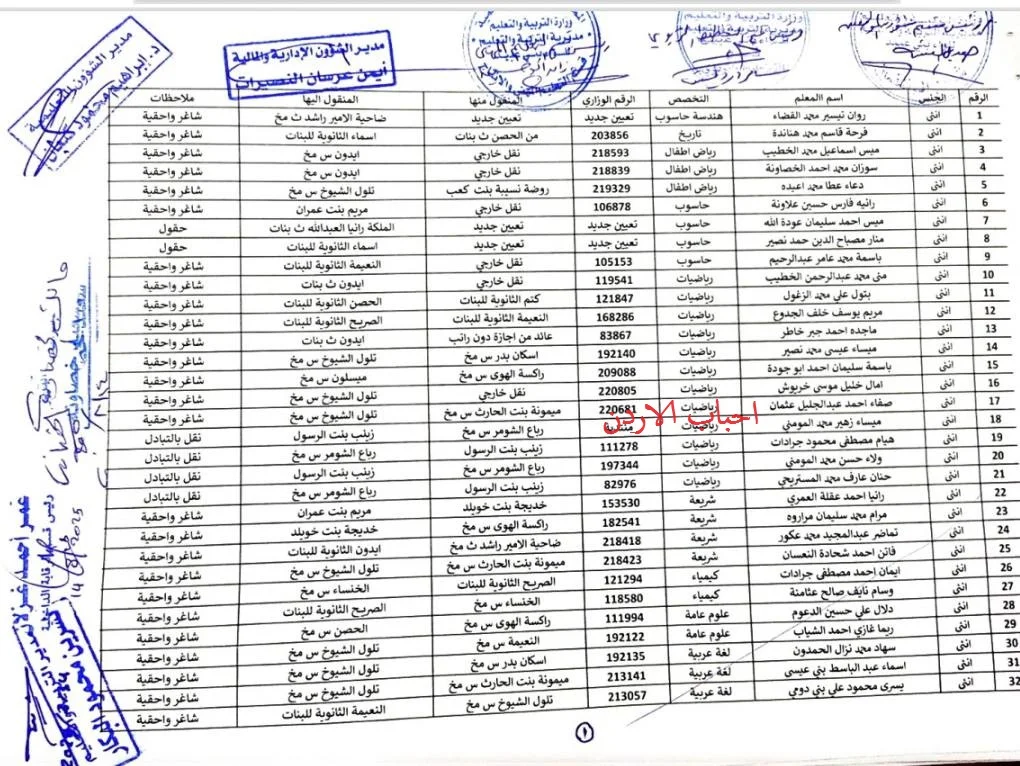 وزارة التربية والتعليم
وزارة التربية والتعليم
وزارة التربية والتعليم
مديرية التربية والتعليم
مدير الشؤون الإدارية والمالية
أيمن عرسان النصيرات
مدير الشؤون التعليمية
د. ابراهيم محمود
الرقم الجنس اسم المعلم التخصص الرقم الوزاري المنقول منها المنقول اليها ملاحظات
1 انثى روان تيسير محمد القضاه هندسة حاسوب تعيين جديد تعيين جديد ضاحية الامير راشد ث مخ شاغر واحقية
2 انثى فرحة قاسم محمد هناندة تاريخ 203856 من الحصن ث بنات اسماء الثانوية للبنات شاغر واحقية
3 انثى ميس اسماعيل محمد الخطيب رياض اطفال 218593 نقل خارجي ايدون س مخ شاغر واحقية
4 انثى سوزان محمد احمد الخصاونة رياض اطفال 218839 نقل خارجي ايدون س مخ شاغر واحقية
5 انثى دعاء عطا محمد اعبده رياض اطفال 219329 روضة نسيبة بنت كعب تلول الشيوخ س مخ شاغر واحقية
6 انثى رانيه فارس حسين علاونة حاسوب 106878 نقل خارجي مريم بنت عمران شاغر واحقية
7 انثى ميس احمد سليمان عودة الله حاسوب تعيين جديد تعيين جديد الملكة رانيا العبدالله ث بنات حقول
8 انثى منار مصباح الدين حمد نصير حاسوب تعيين جديد تعيين جديد اسماء الثانوية للبنات حقول
9 انثى باسمة محمد عامر عبدالرحيم حاسوب 105153 نقل خارجي النعيمة الثانوية للبنات شاغر واحقية
10 انثى منى محمد عبدالرحمن الخطيب رياضيات 119541 نقل خارجي ايدون ث بنات شاغر واحقية
11 انثى بتول علي محمد الزغول رياضيات 121847 كتم الثانوية للبنات الحصن الثانوية للبنات شاغر واحقية
12 انثى مريم يوسف خلف الجدوع رياضيات 168286 النعيمة الثانوية للبنات الصريح الثانوية للبنات شاغر واحقية
13 انثى ماجده احمد جبر خاطر رياضيات 83867 عائد من اجازة دون راتب ايدون ث بنات شاغر واحقية
14 انثى ميساء عيسى محمد نصير رياضيات 192140 اسكان بدر س مخ تلول الشيوخ س مخ شاغر واحقية
15 انثى باسمة سليمان احمد ابو جودة رياضيات 209088 راكسة الهوى س مخ ميسلون س مخ شاغر واحقية
16 انثى امال خليل موسى خربوش رياضيات 220805 نقل خارجي تلول الشيوخ س مخ شاغر واحقية
17 انثى صفاء احمد عبدالجليل عثمان رياضيات 220681 ميمونة بنت الحارث س مخ تلول الشيوخ س مخ شاغر واحقية
احباب الاردن
18 انثى ميساء زهير محمد المومني رياضيات رباع الشومر س مخ زينب بنت الرسول نقل بالتبادل
19 انثى هيام مصطفى محمود جرادات رياضيات 111278 زينب بنت الرسول رباع الشومر س مخ نقل بالتبادل
20 انثى ولاء حسن محمد المومني رياضيات 197344 رباع الشومر س مخ زينب بنت الرسول نقل بالتبادل
21 انثى حنان عارف محمد المستريحي رياضيات 82976 زينب بنت الرسول رباع الشومر س مخ نقل بالتبادل
22 انثى رانيا احمد عقلة العمري شريعة 153530 خديجة بنت خويلد مريم بنت عمران شاغر واحقية
23 انثى مرام محمد سليمان مراروه شريعة 182541 راكسة الهوى س مخ خديجة بنت خويلد شاغر واحقية
24 انثى تماضر عبدالمجيد محمد عكور شريعة 218418 ضاحية الامير راشد ث مخ ايدون الثانوية للبنات شاغر واحقية
25 انثى فاتن احمد شحادة النعسان شريعة 218423 ميمونة بنت الحارث س مخ تلول الشيوخ س مخ شاغر واحقية
26 انثى ايمان احمد مصطفى جرادات كيمياء 121294 الصريح الثانوية للبنات الخنساء س مخ شاغر واحقية
27 انثى وسام نايف صالح عثامنة كيمياء 118580 الخنساء س مخ الصريح الثانوية للبنات شاغر واحقية
28 انثى دلال علي حسين الدعوم علوم عامة 111994 راكسة الهوى س مخ الحصن س مخ شاغر واحقية
29 انثى ريما غازي احمد الشياب علوم عامة 192122 النعيمة س مخ تلول الشيوخ س مخ شاغر واحقية
30 انثى سهاد محمد نزال الحمدون لغة عربية 192135 اسكان بدر س مخ تلول الشيوخ س مخ شاغر واحقية
31 انثى اسماء عبد الباسط بني عيسى لغة عربية 213141 ميمونة بنت الحارث س مخ تلول الشيوخ س مخ شاغر واحقية
32 انثى يسرى محمود علي بني دومي لغة عربية 213057 تلول الشيوخ س مخ النعيمة الثانوية للبنات شاغر واحقية
١